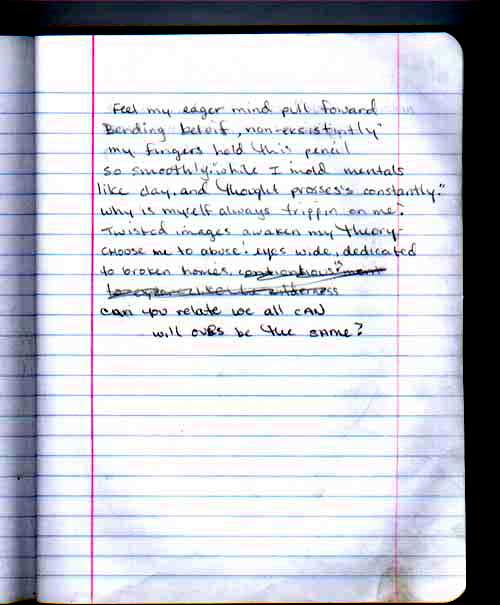 Feel my eager mind pull foward
Bending beleif, non-exsistantly"
my fingers hold this pencil
so smoothly. while I mold mentals
like clay. and thought prosses's constantly."
why is myself always trippin on me?
Twisted images awaken my theory-
CHOOSE me to abuse! eyes wide, dedicated
to broken homes.
can you relate we all CAN
will OURS be the SAME?